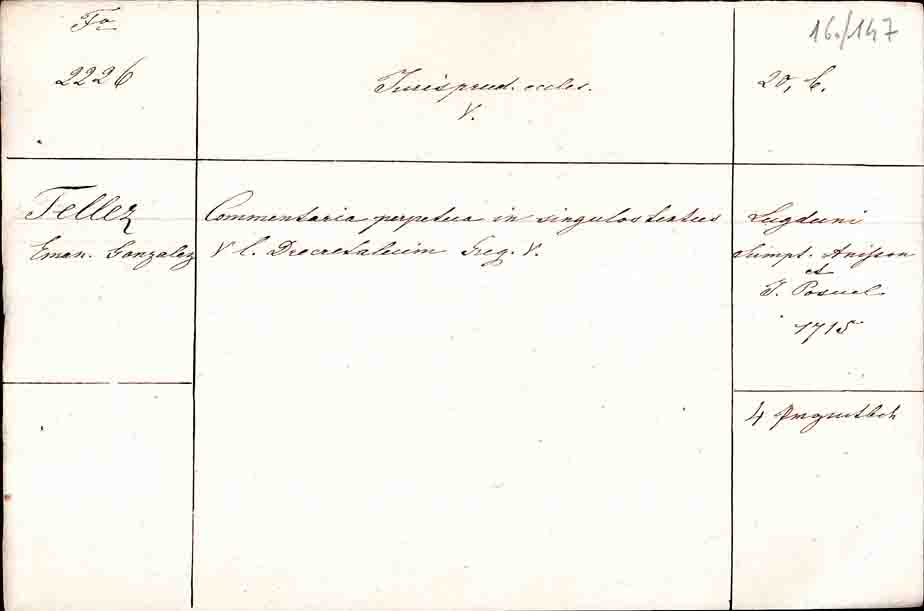 Fo
2226
Jurisprud. eccles.
V.
16./147
20, C.
Tellez
Eman. Gonzalez
Commentaria perpetua in singulos textus
V l. Decretalium Greg. V.
Lugduni
Sumpt. Anisson
et
J. Posuel
1715
4